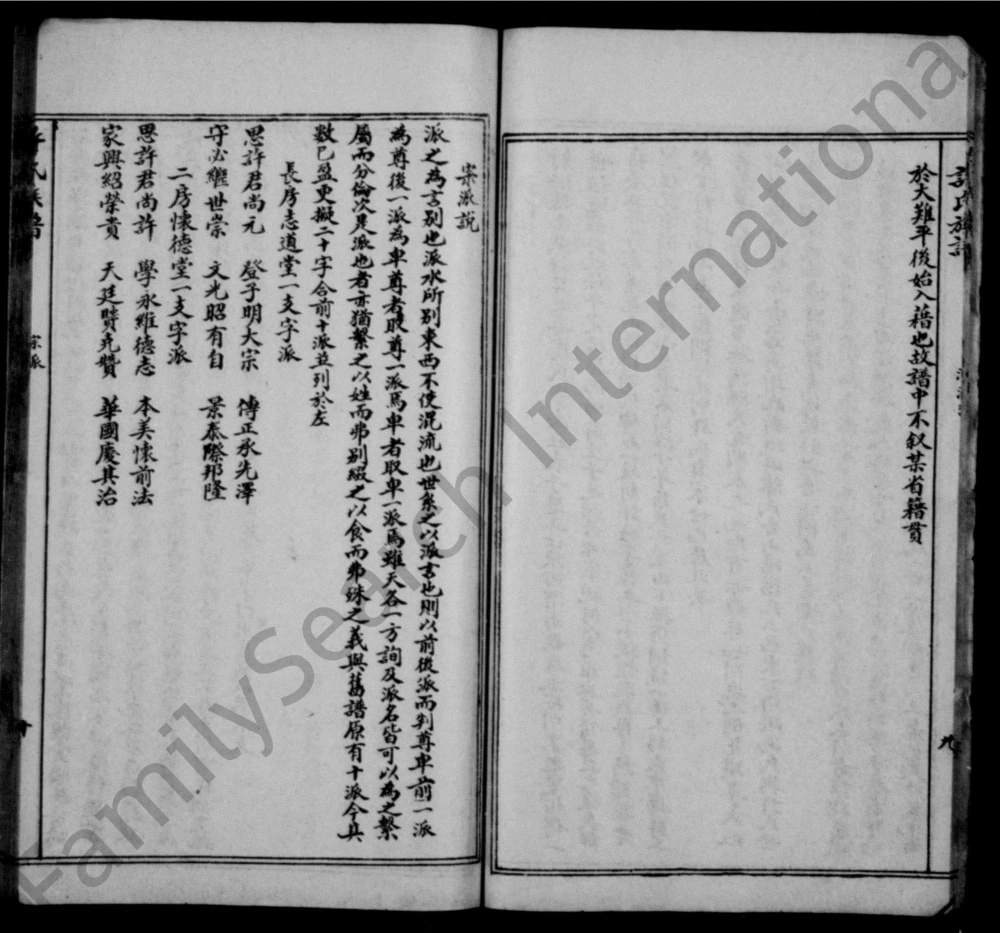 許氏族譜
九
於大難平後始入藉也故譜中不叙某省籍貫
宗派說
派之為言别也派水所别東西不使混流也世系之以派言也則以前後派而判尊卑前一派
為尊後一派為卑尊者取尊一派焉卑者取卑一派焉雖天各一方詢及派名皆可以為之繫
屬而分倫次是派也者亦猶繫之以姓而弗别綴之以食而弗殊之義與舊譜原有十派今其
数已盈更擬二十字合前十派並列於左
長房志道堂一支字派
思許君尚元 登子明大宗 傳正承先澤
守必繼世崇 文光昭有自 景泰際邦隆
二房懷德堂一支字派
思許君尚許 學永維德志 本美懷前法
家興紹榮貴 天廷賡堯贊 華國慶其治
宗派
FamilySearch International